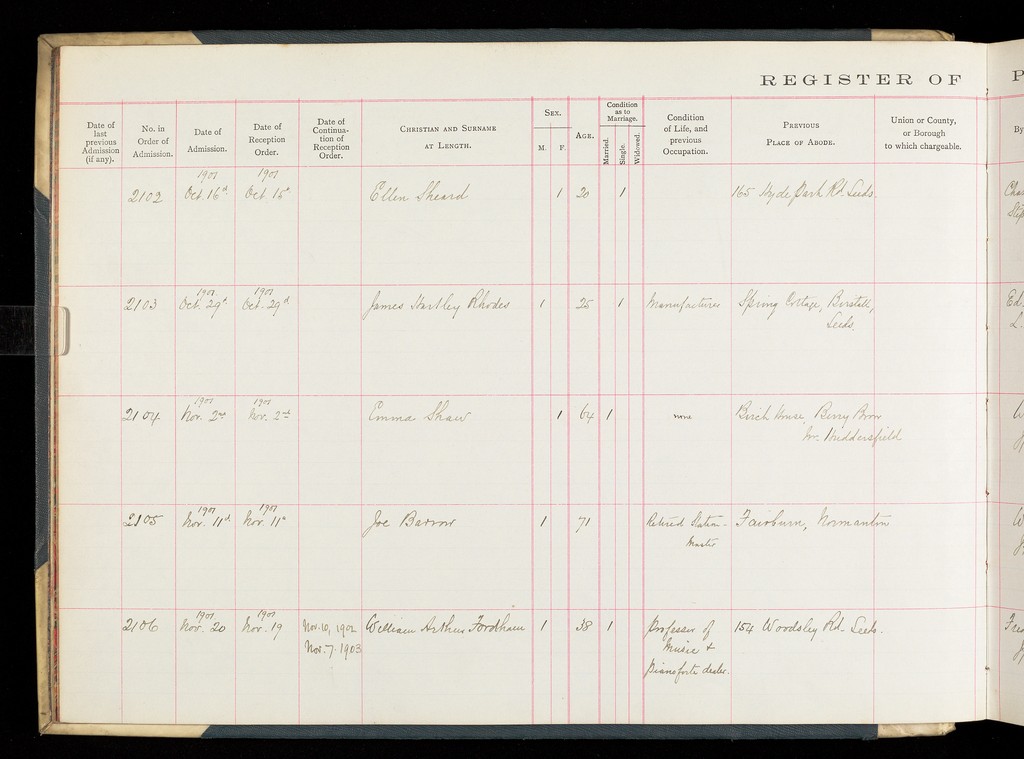 REGISTER OF P
Date of last previous Admission (if any).
No. in Order of Admission.
Date of Admission.
Date of Reception Order.
Date of Continua-tion of Reception Order.
Christian and Surname at Length.
Sex.
M. F.
Age.
Condition as to Marriage.
Married. Single. Widowed.
Condition of Life, and previous Occupation.
Previous Place of Abode.
Union or County, or Borough to which chargeable.
By
1901 1901
2102 Oct. 16 Oct. 15 Ellen Sheard 1 1 165 Hyde Park Rd. Leeds.
1901 1901
2103 Oct. 29 Oct. 29 James Hartley Rhodes 1 25 1 Manufacturer Spring Cottage, Birstall,
Leeds.
1901 1901
2104 Nov. 2nd Nov. 2nd Emma Shaw 1 64 1 none Birch House, Berry Brow
nr. Huddersfield
1901 1901
2105 Nov. 11 Nov. 11 Joe Barrow 1 71 Retired Station- Fairburn, Normanton
Master
1901 1901
2106 Nov. 20 Nov. 19 Nov. 10, 1902 William Arthur Fordham 1 38 1 Professor of 154 Woodsley Rd. Leeds.
Nov. 7. 1903 Music &
pianoforte dealer.